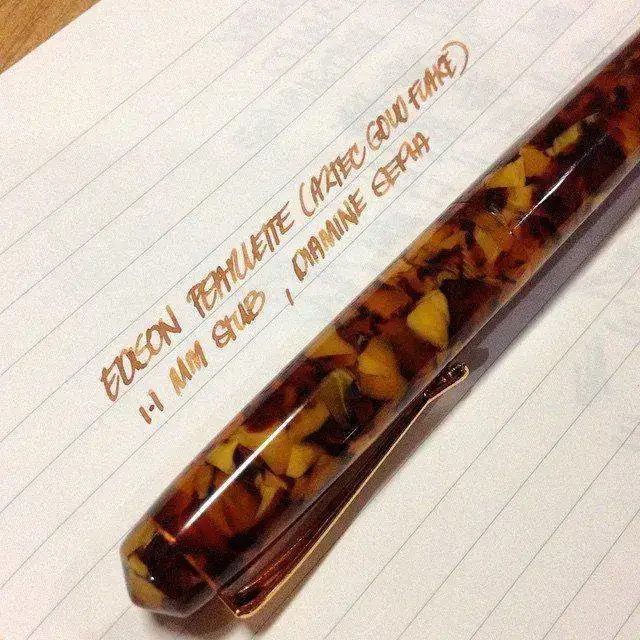 EDISON PEARLETTE (AZTEC GOLD FLAKE)
1.1 MM STUB, DIAMINE SEPIA